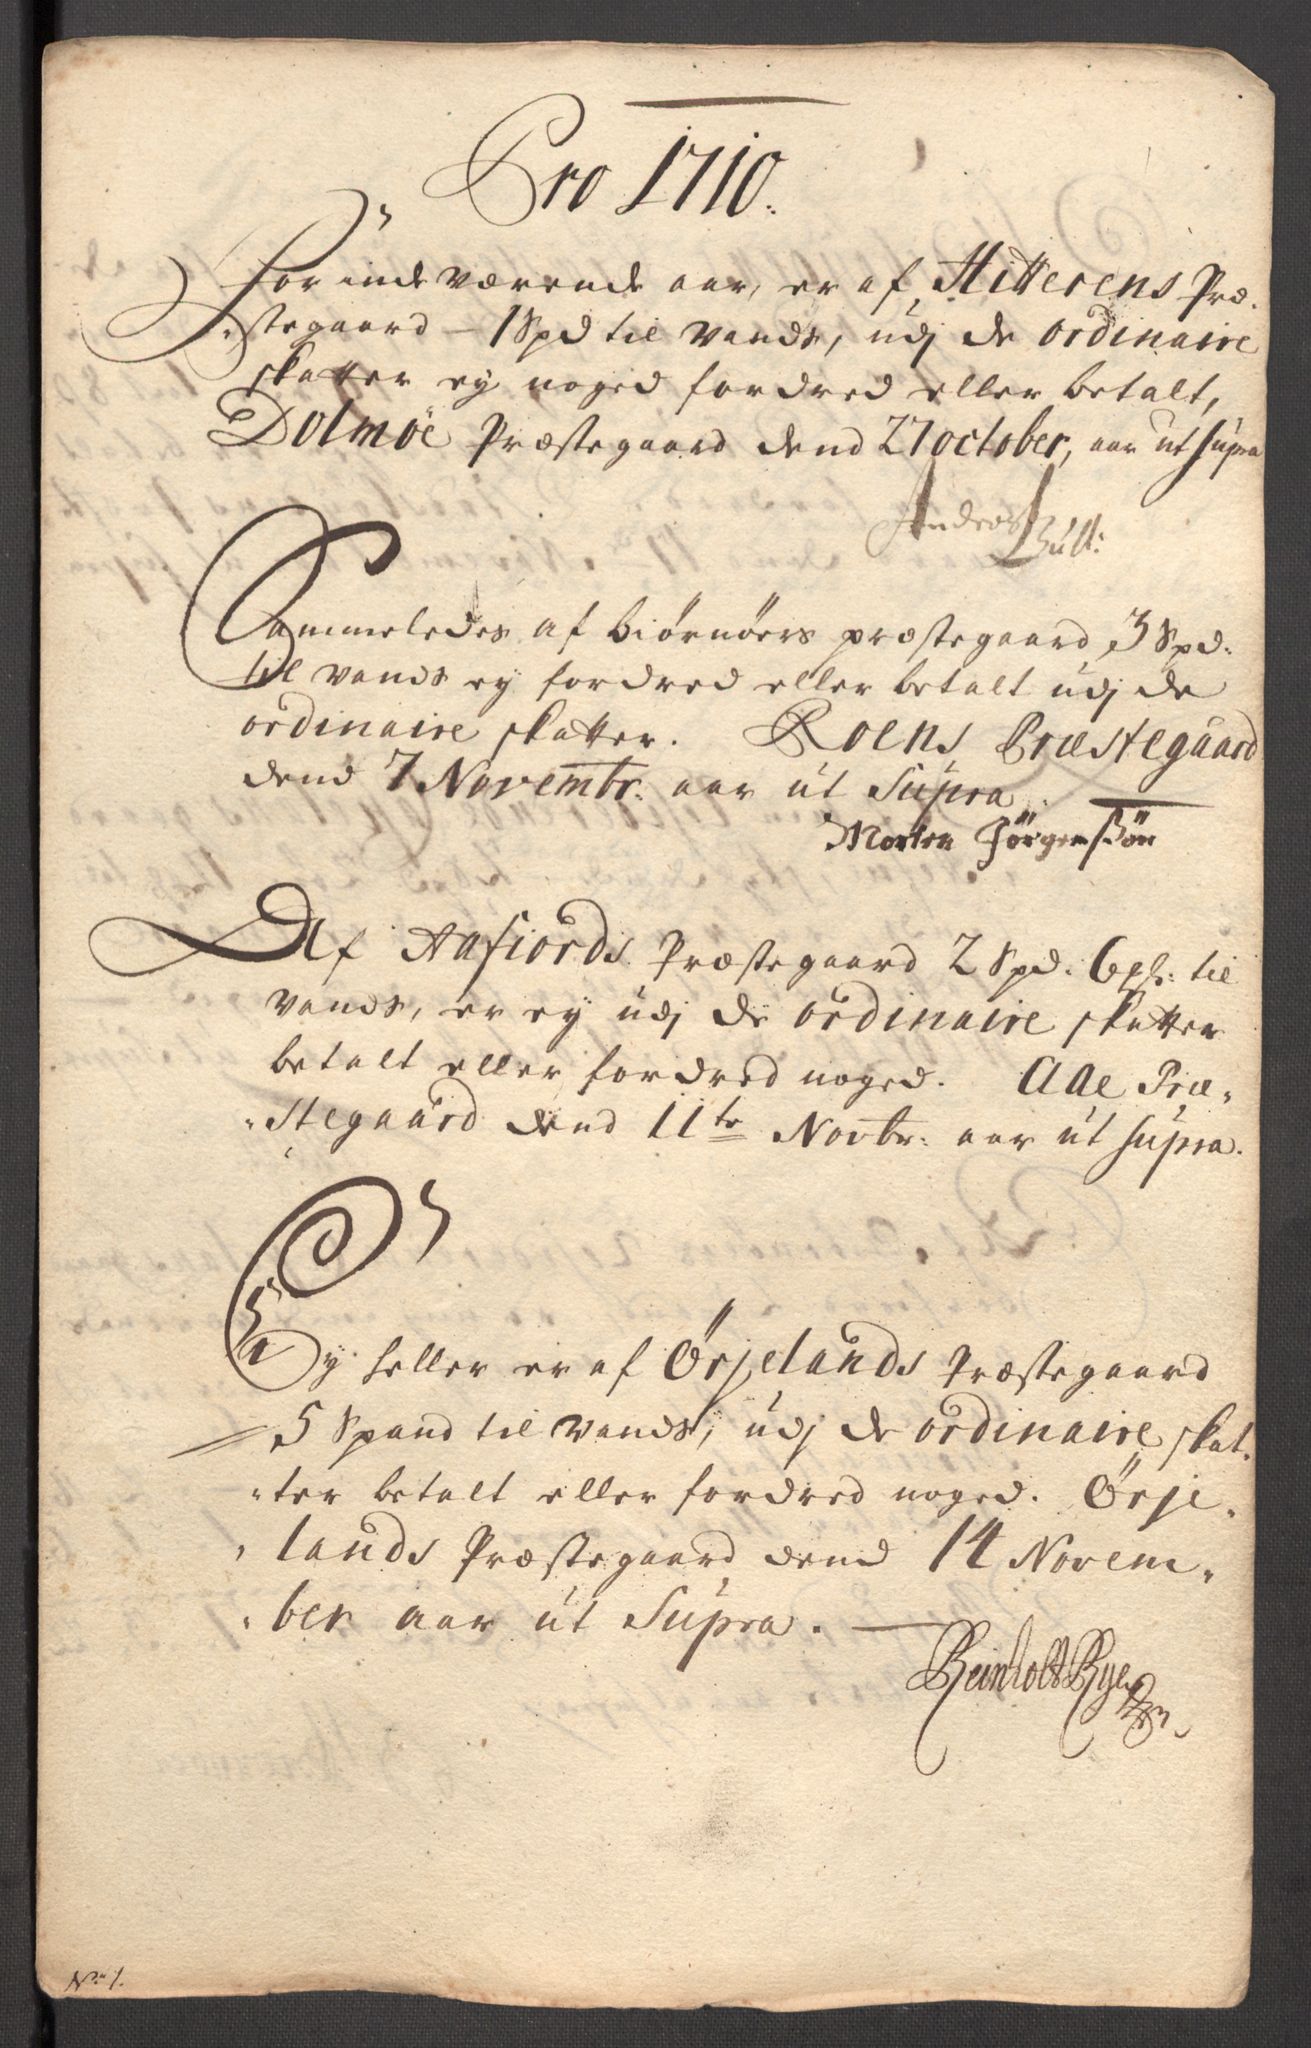 Pro 1710.
For inde værende aar, er af Hitterens Præ-
stegaard - 1 Spd til vands, udj de ordinaire
skatter ey noged fordred eller betalt,
Dolmöe Præstegaard dend 27 october, aar ut supra
Andreas Bull:
Sammeledes af Biørnöers præstegaard 3 Spd:
til vands ey fordred eller betalt udj de
ordinaire skatter. Roens Præstegaard
dend 7 Novembr: aar ut Supra.
Morten Jörgensßön
Af Aafiords Præstegaard 2 Spd: 6 pf: til
vands, er ey udj de ordinaire skatter
betalt eller fordred noged. Aae Præ-
stegaard dend 11te Novbr: aar ut supra.
Ey heller er af Örjelands Præstegaard
5 Spand til vands, udj de ordinaire skat-
ter betalt eller fordred noged. Örje-
lands Præstegaard dend 14 Novem-
ber aar ut Supra.
Reinholt Bye
No 1.